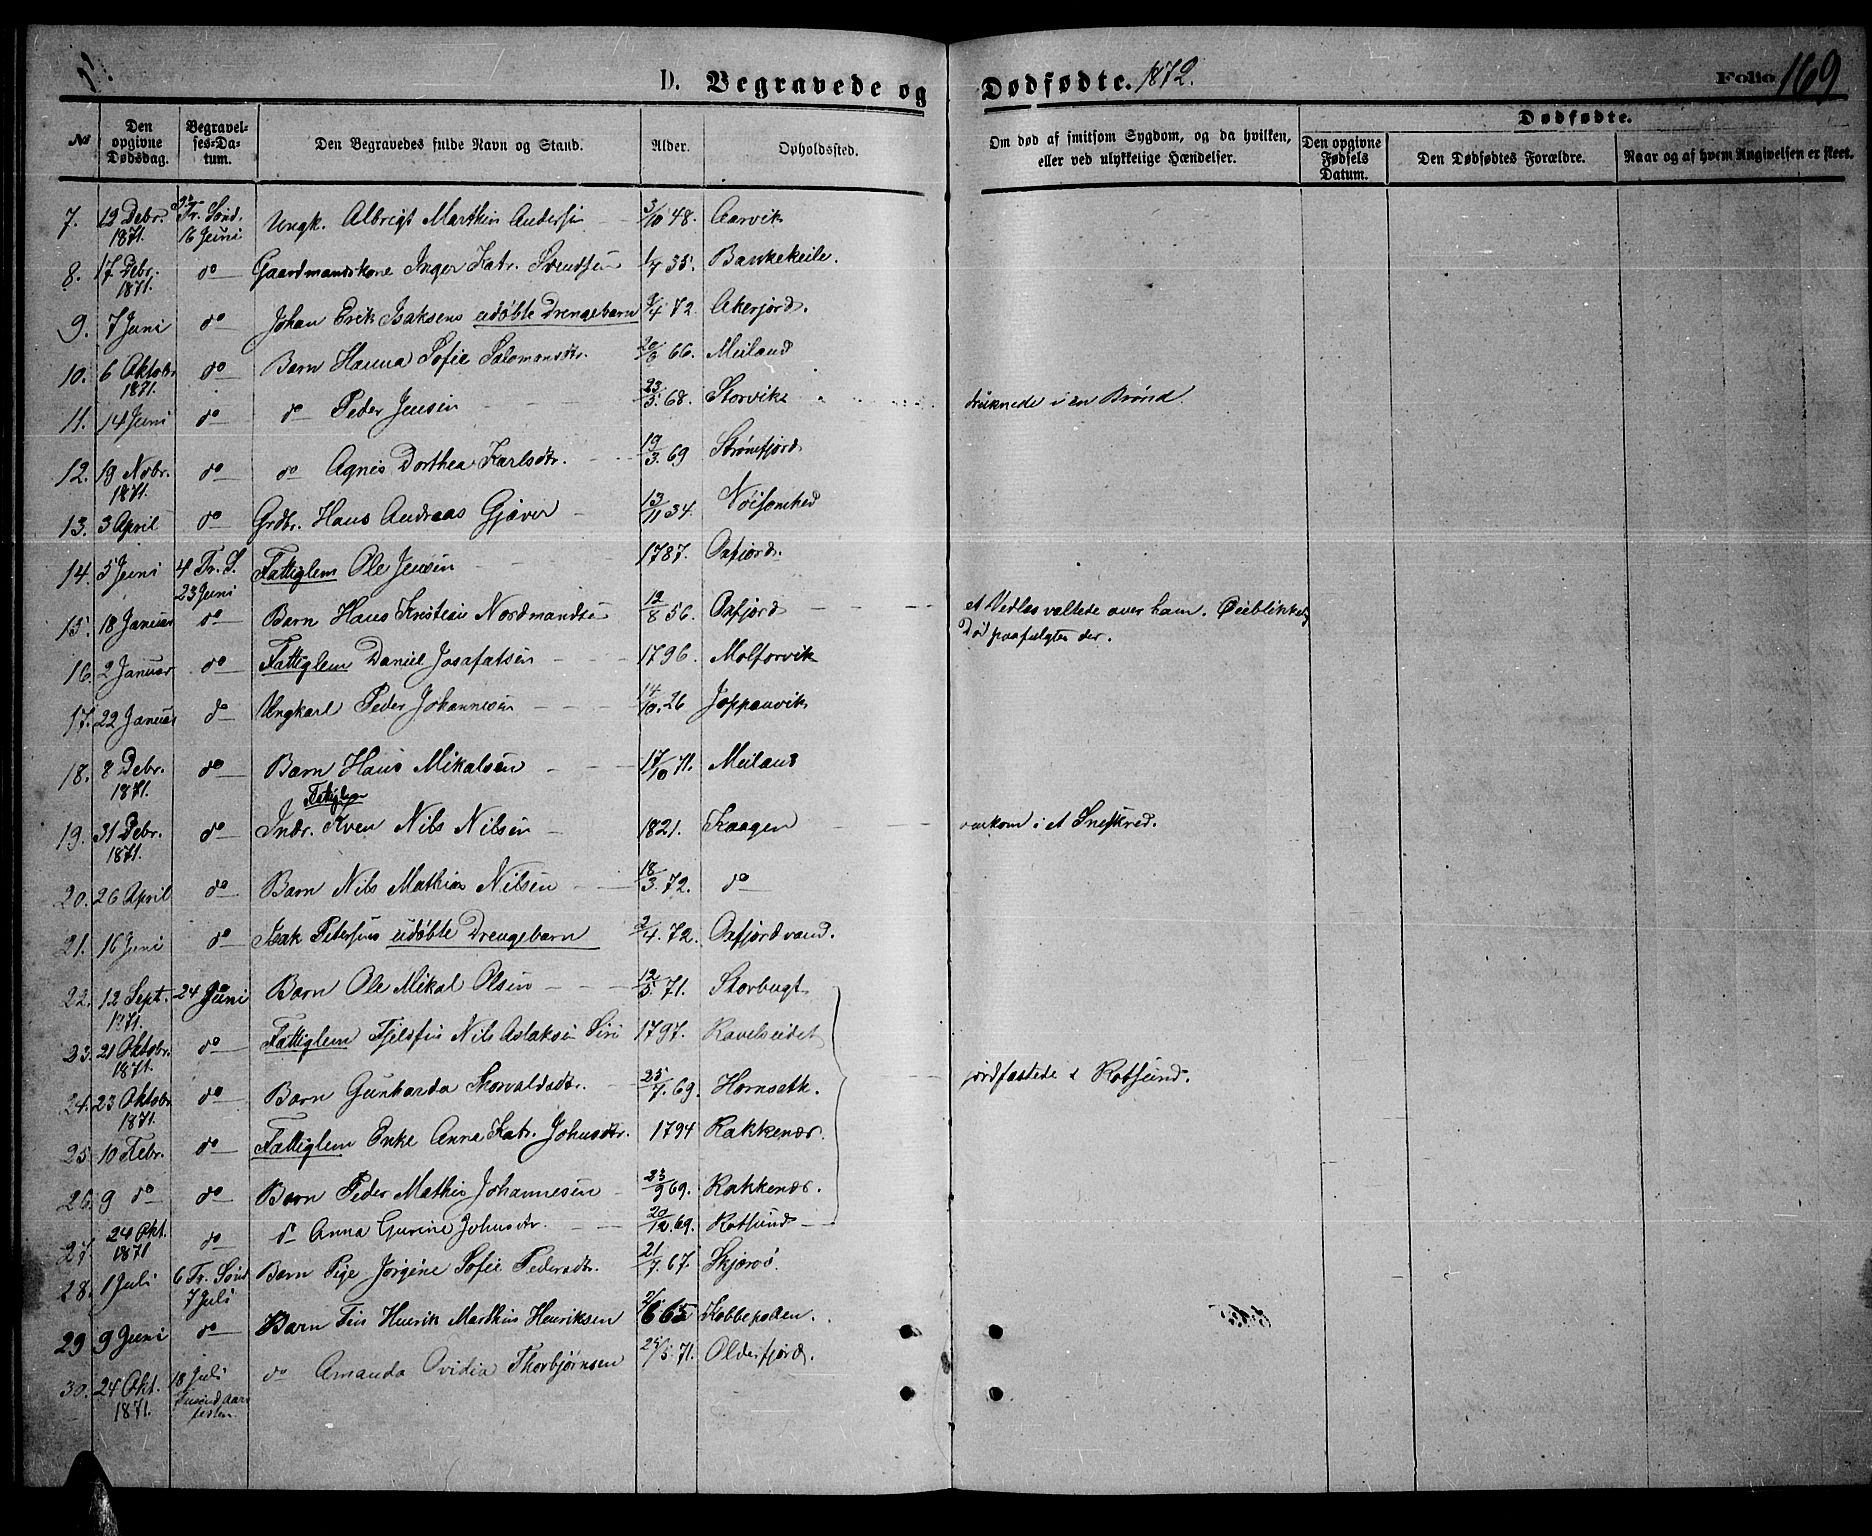 D. Begravede og Dødfødte. 1872. Folio 169
№ Den opgivne Dødsdag. Begravelses-Datum. Den Begravedes fulde Navn og Stand. Alder. Opholdssted. Om død af smitsom Sygdom, og da hvilken, eller ved ulykkelige Hændelser. Dødfødte. Den opgivne Fødsels Datum. Den Dødfødtes Forældre. Naar og af hvem Angivelsen er skeet.
7. 19 Debr. 1871. Tr. Sønd. 16 Juni Ungk. Albrigt Marthin Andersen 3/10 48. Aarvik
8. 17 Debr. 1871. do Gaardmandskone Inger Katr. Svendsen 1/7 35. Bankekeile.
9. 7 Juni do Johan Erik Isaksens udøbte Drengebarn 9/4 72. Akerjord.
10. 6 Oktobr 1871. do Barn Hanna Sofie Salomonsdtr. 20/6 66. Meiland
11. 14 Juni do do Peder Jensen 23/3. 68. Storvik druknede i en Brønd.
12. 19 Nobr. 1871. do do Agnis Dorthea Karlsdtr. 19/3. 69 Strømfjord
13. 3 April do Grdbr. Hans Andreas Gjæver 13/11 34. Nøisomhed
14. 5 Juni 4 Tr. S. 23 Juni Fattiglem Ole Jensen 1787. Oxfjord.
15. 18 Januar do Barn Hans Kristian Nordmandsen 12/8 56. Oxfjord et Vedlas valtede over ham. Øieblikkelig Død paafulgte der.
16. 2 Januar do Fattiglem Daniel Josafatsen 1796. Molforvik
17. 22 Januar do Ungkarl Peder Johannesen 14/10. 26 Joppanvik
18. 8 Debr. 1871. do Barn Hans Mikalsen 17/10 71. Meiland
19. 31 Debr. 1871. do Fattiglem Indr. Kven Nils Nilsen 1821. Kaagen omkom i et Sneskred.
20. 26 April do Barn Nils Mathias Nilsen 18/3. 72. do
21. 16 Juni do Isak Petersens udøbte Drengebarn 2/4. 72. Oxfjordvand.
22. 12 Sept. 1871. 24 Juni Barn Ole Mikal Olsen 12/5. 71. Storbugt
23. 21 Oktobr. 1871. do Fattiglem Fjelfin Nils Aslaksen Siri 1797. Ravelseidet
24. 23 Oktobr 1871. do Barn Gunharda Thorvaldsdtr. 25/7. 69. Hamneth. jordfæstede i Rotsund.
25. 10 Febr. do Fattiglem Enke Anna Katr. Johnsdtr. 1794 Rakkenæs.
26. 9 do do Barn Peder Mathis Johannesen 23/9 69. Rakkenæs.
27. 24 Okt. 1871 do do Anna Gurine Johnsdtr. 20/12. 69. Rotsund
28. 1 Juli 6 Tr. Sønd 7 Juli Barn Pige Jørgine Sofie Pedersdtr. 21/7. 67. Skjærvø.
29 9 Juni do Barn Fin Henrik Marthin Henriksen 2/6 65 Kobbepollen.
30. 24 Okt. 1871. 18 Juli do Amanda Ovidia Thorbjørnsen 25/5. 71. Olderfjord.